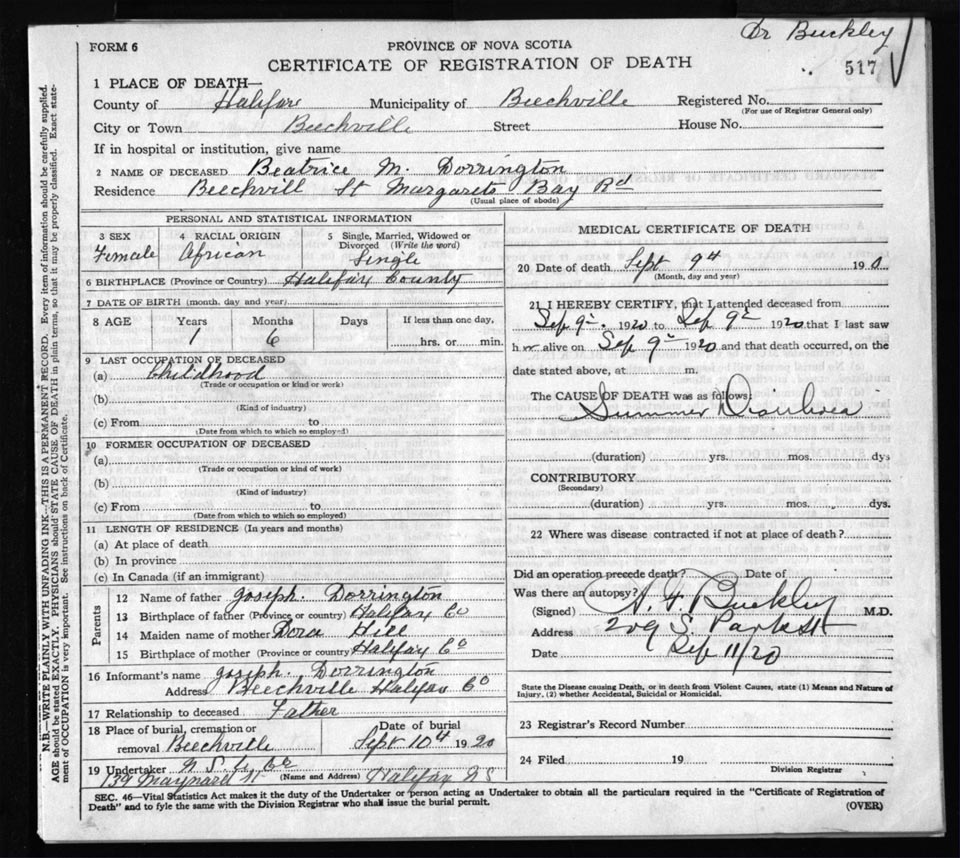 Dr Buckley
FORM 6
PROVINCE OF NOVA SCOTIA
CERTIFICATE OF REGISTRATION OF DEATH
517
1 PLACE OF DEATH—
County of Halifax Municipality of Beechville Registered No.
(For use of Registrar General only)
City or Town Beechville Street House No.
If in hospital or institution, give name
2 NAME OF DECEASED Beatrice M. Dorrington
Residence Beechvill St Margarets Bay Rd
(Usual place of abode)
PERSONAL AND STATISTICAL INFORMATION
3 SEX Female
4 RACIAL ORIGIN African
5 Single, Married, Widowed or Divorced (Write the word) Single
6 BIRTHPLACE (Province or Country) Halifax County
7 DATE OF BIRTH (month, day and year)
8 AGE Years Months Days If less than one day,
1 6 hrs. or min.
9 LAST OCCUPATION OF DECEASED
(a) Childhood
(Trade or occupation or kind or work)
(b)
(Kind of industry)
(c) From to
(Date from which to which so employed)
10 FORMER OCCUPATION OF DECEASED
(a)
(Trade or occupation or kind of work)
(b)
(Kind of industry)
(c) From to
(Date from which to which so employed)
11 LENGTH OF RESIDENCE (In years and months)
(a) At place of death
(b) In province
(c) In Canada (if an immigrant)
Parents
12 Name of father Joseph. Dorrington
13 Birthplace of father (Province or country) Halifax Co
14 Maiden name of mother Dora Hill
15 Birthplace of mother (Province or country Halifax Co
16 Informant's name Joseph. Dorrington
Address Beechville Halifax Co
17 Relationship to deceased Father
18 Place of burial, cremation or removal Beechville
Date of burial Sept 10th 1920
19 Undertaker N S U Co
(Name and Address)
139 Maynard St Halifax NS
MEDICAL CERTIFICATE OF DEATH
20 Date of death Sept 9th 190
(Month, day and year)
21 I HEREBY CERTIFY, that I attended deceased from
Sep 9th 1920 to Sep 9th 1920 that I last saw
h alive on Sep 9th 1920 and that death occurred, on the
date stated above, at m.
The CAUSE OF DEATH was as follows:
Summer Diarrhoea
(duration) yrs. mos. dys
CONTRIBUTORY
(Secondary)
(duration) yrs. mos. dys.
22 Where was disease contracted if not at place of death?
Did an operation precede death? Date of
Was there an autopsy?
(Signed) A. F. Buckley M.D.
Address 209 S. Park St
Date Sep 11/20
State the Disease causing Death, or in death from Violent Causes, state (1) Means and Nature of
Injury. (2) whether Accidental, Suicidal or Homicidal.
23 Registrar's Record Number
24 Filed 19
Division Registrar
SEC. 46—Vital Statistics Act makes it the duty of the Undertaker or person acting as Undertaker to obtain all the particulars required in the "Certificate of Registration of
Death" and to fyle the same with the Division Registrar who shall issue the burial permit.
(OVER)
N.B.—WRITE PLAINLY WITH UNFADING INK—THIS IS A PERMANENT RECORD. Every item of information should be carefully supplied.
AGE should be stated EXACTLY. PHYSICIANS should STATE CAUSE OF DEATH in plain terms, so that it may be properly classified. Exact statement of OCCUPATION is very important. See instructions on back of Certificate.